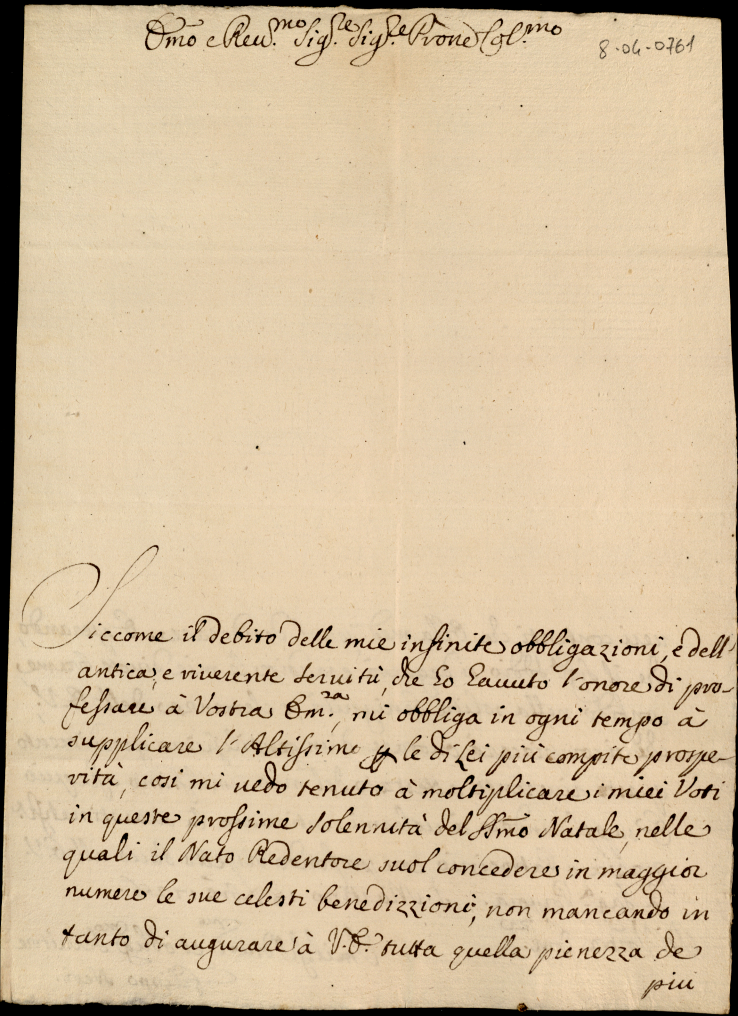 Em̃o e Reu.mo Sig.re Sig.re Prone Col.mo
8-04-0761
Siccome il debito delle mie infinite obbligazioni, e dell'
antica, e riverente servitù, che ho hauuto l'onore di pro-
fessare à Vostra Em.za, mi obbliga in ogni tempo à
supplicare l'Altissimo p le di Lei più compite prospe-
rità, così mi uedo tenuto à moltiplicare i miei Voti
in queste prossime solennità del SSm̃o Natale, nelle
quali il Nato Redentore suol concedere in maggior
numero le sue celesti benedizzioni, non mancando in
tanto di augurare à V.E. tutta quella pienezza de
più